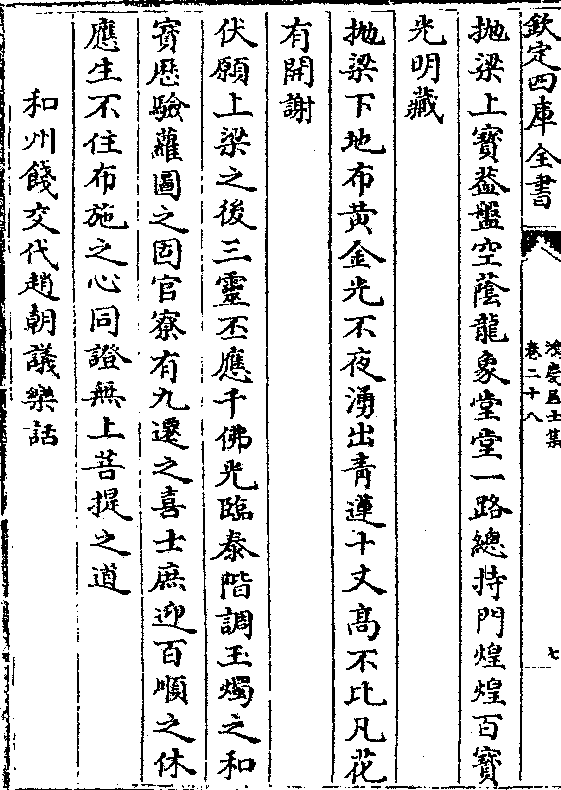 欽定四庫全書
鴻慶居士集
卷二十八
七
抛梁上寳葢盤空蔭龍象堂堂一路總持門煌煌百寳
光明藏
抛梁下地布黄金光不夜湧出青蓮十丈髙不比凡花
有開謝
伏願上梁之後三靈丕應千佛光臨泰階調玉燭之和
寳厯驗蘿圖之固官寮有九遷之喜士庶迎百順之休
應生不住布施之心同證無上菩提之道
和州餞交代趙朝議樂話